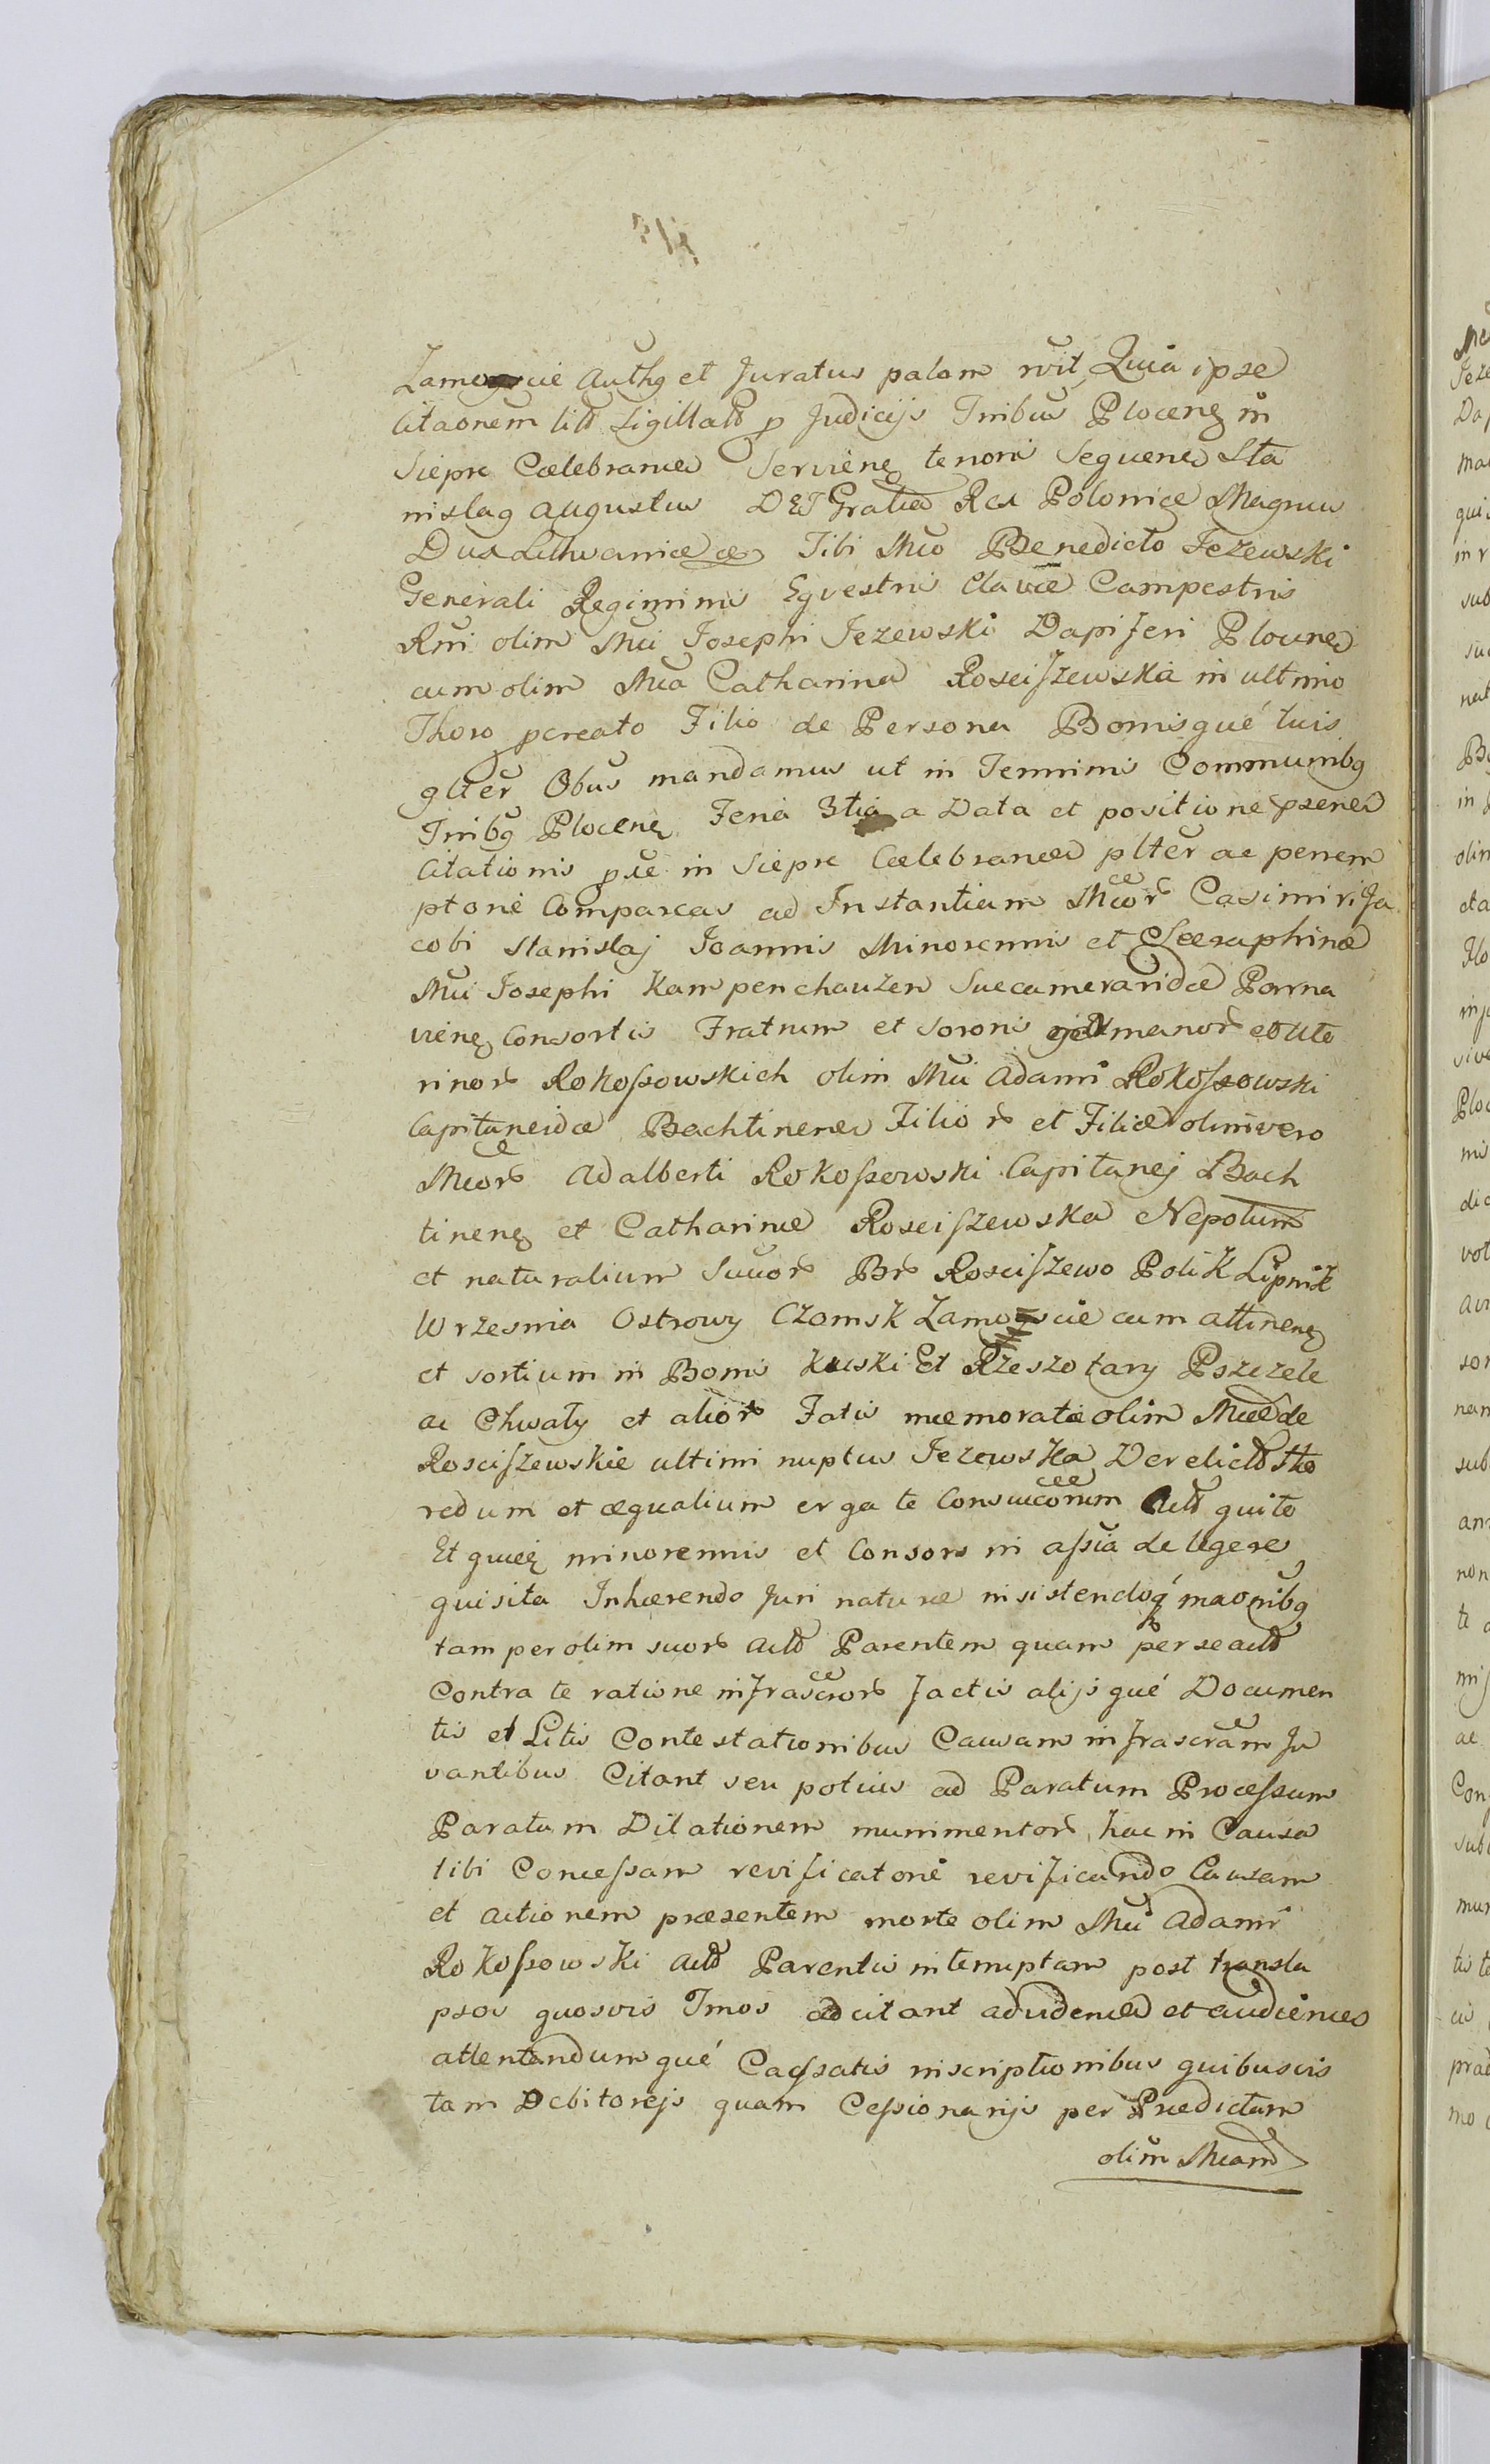 Zamoscie Authg et Juratus palam rvit Quia ipse
Citaonem litt Sigillatt p Judicijs Tnibus Plocenq in
Siepre Cœlebranda Servienq tenoris Sequenei Sta
nislag Augustus DEI Gratia Rex Poloniæ Magnus
Dux Lithvaniæ æ Tibi Mco Benedicto Jezewski
Generali Regiminis Eqvestris Clavæ Campestris
Rni olim Mci Josephi Jezewski Dapiferi Plocnei
cum olim Mca Catharina Rosciszewska in ultimo
Thoro pcreato Filio de Persona Bonisqué tuis
glter Obus mandamus ut in Terminis Communibg
Tnibg Plocenq Feria 3tia a Data et positione psenei
Citationis pse in Siepre Cœlebrandei plter ac perem
ptorie Compareas ad Instantiam Mcor Casimiri Ja
cobi Stanislaj Joannis Minorennis et Særaphinæ
Mci Josephi Kampenchauzen Succameraridæ Parna
vienq Consortis Fratrum et Sororis germanor et Ute
rinor Rokoſsowskich olim Mci Adami Rokoſsowski
Capitaneidæ Bachtinenei Filior et Filiæ olim vero
Mcor Adalberti Rokoſsowski Capitanej Bach
tinenq et Catharinæ Rosciſzewska Nepotum
et naturalium Suuor Br Rosciſzewo Polik Lipnik
Wrzesnia Ostrowy Czomsk Zamoscie cum attinenq
et sortium in Bonis Kuski Et Rzeszotary Pszczele
ac Chwały et alior Fatis memoratæ olim Mcæ de
Rosciſzewskie ultimi nuptus Jezewska Derelictt Hæ
redum et æqualium erga te Consuccorum Actt qui te
Et quieq minorennis et Consors in aſsia de lege re
quisita Inhærendo Juri naturæ insistendog maonibg
tam per olim suor actt Parentem quam per se actt
Contra te ratione infrascror factis alijsqué Documen
tis et Litis Contestationibus Causam infrascram Ju
vantibus Citant seu potius ad Paratum Proceſsum
Paratam Dilationem munimentor hac in Causa
tibi Conceſsam revificatoné revificando Causam
et actionem præsentem morte olim Mci Adami
Rokoſsowski actt Parentis interruptam post transla
psos quosvis Tmos adcitant advidendei et audiendei
attentandumqué Caſsatis inscriptionibus quibusvis
tam Debitorijs quam Ceſsionarijs per Prædictam
olim Mcam